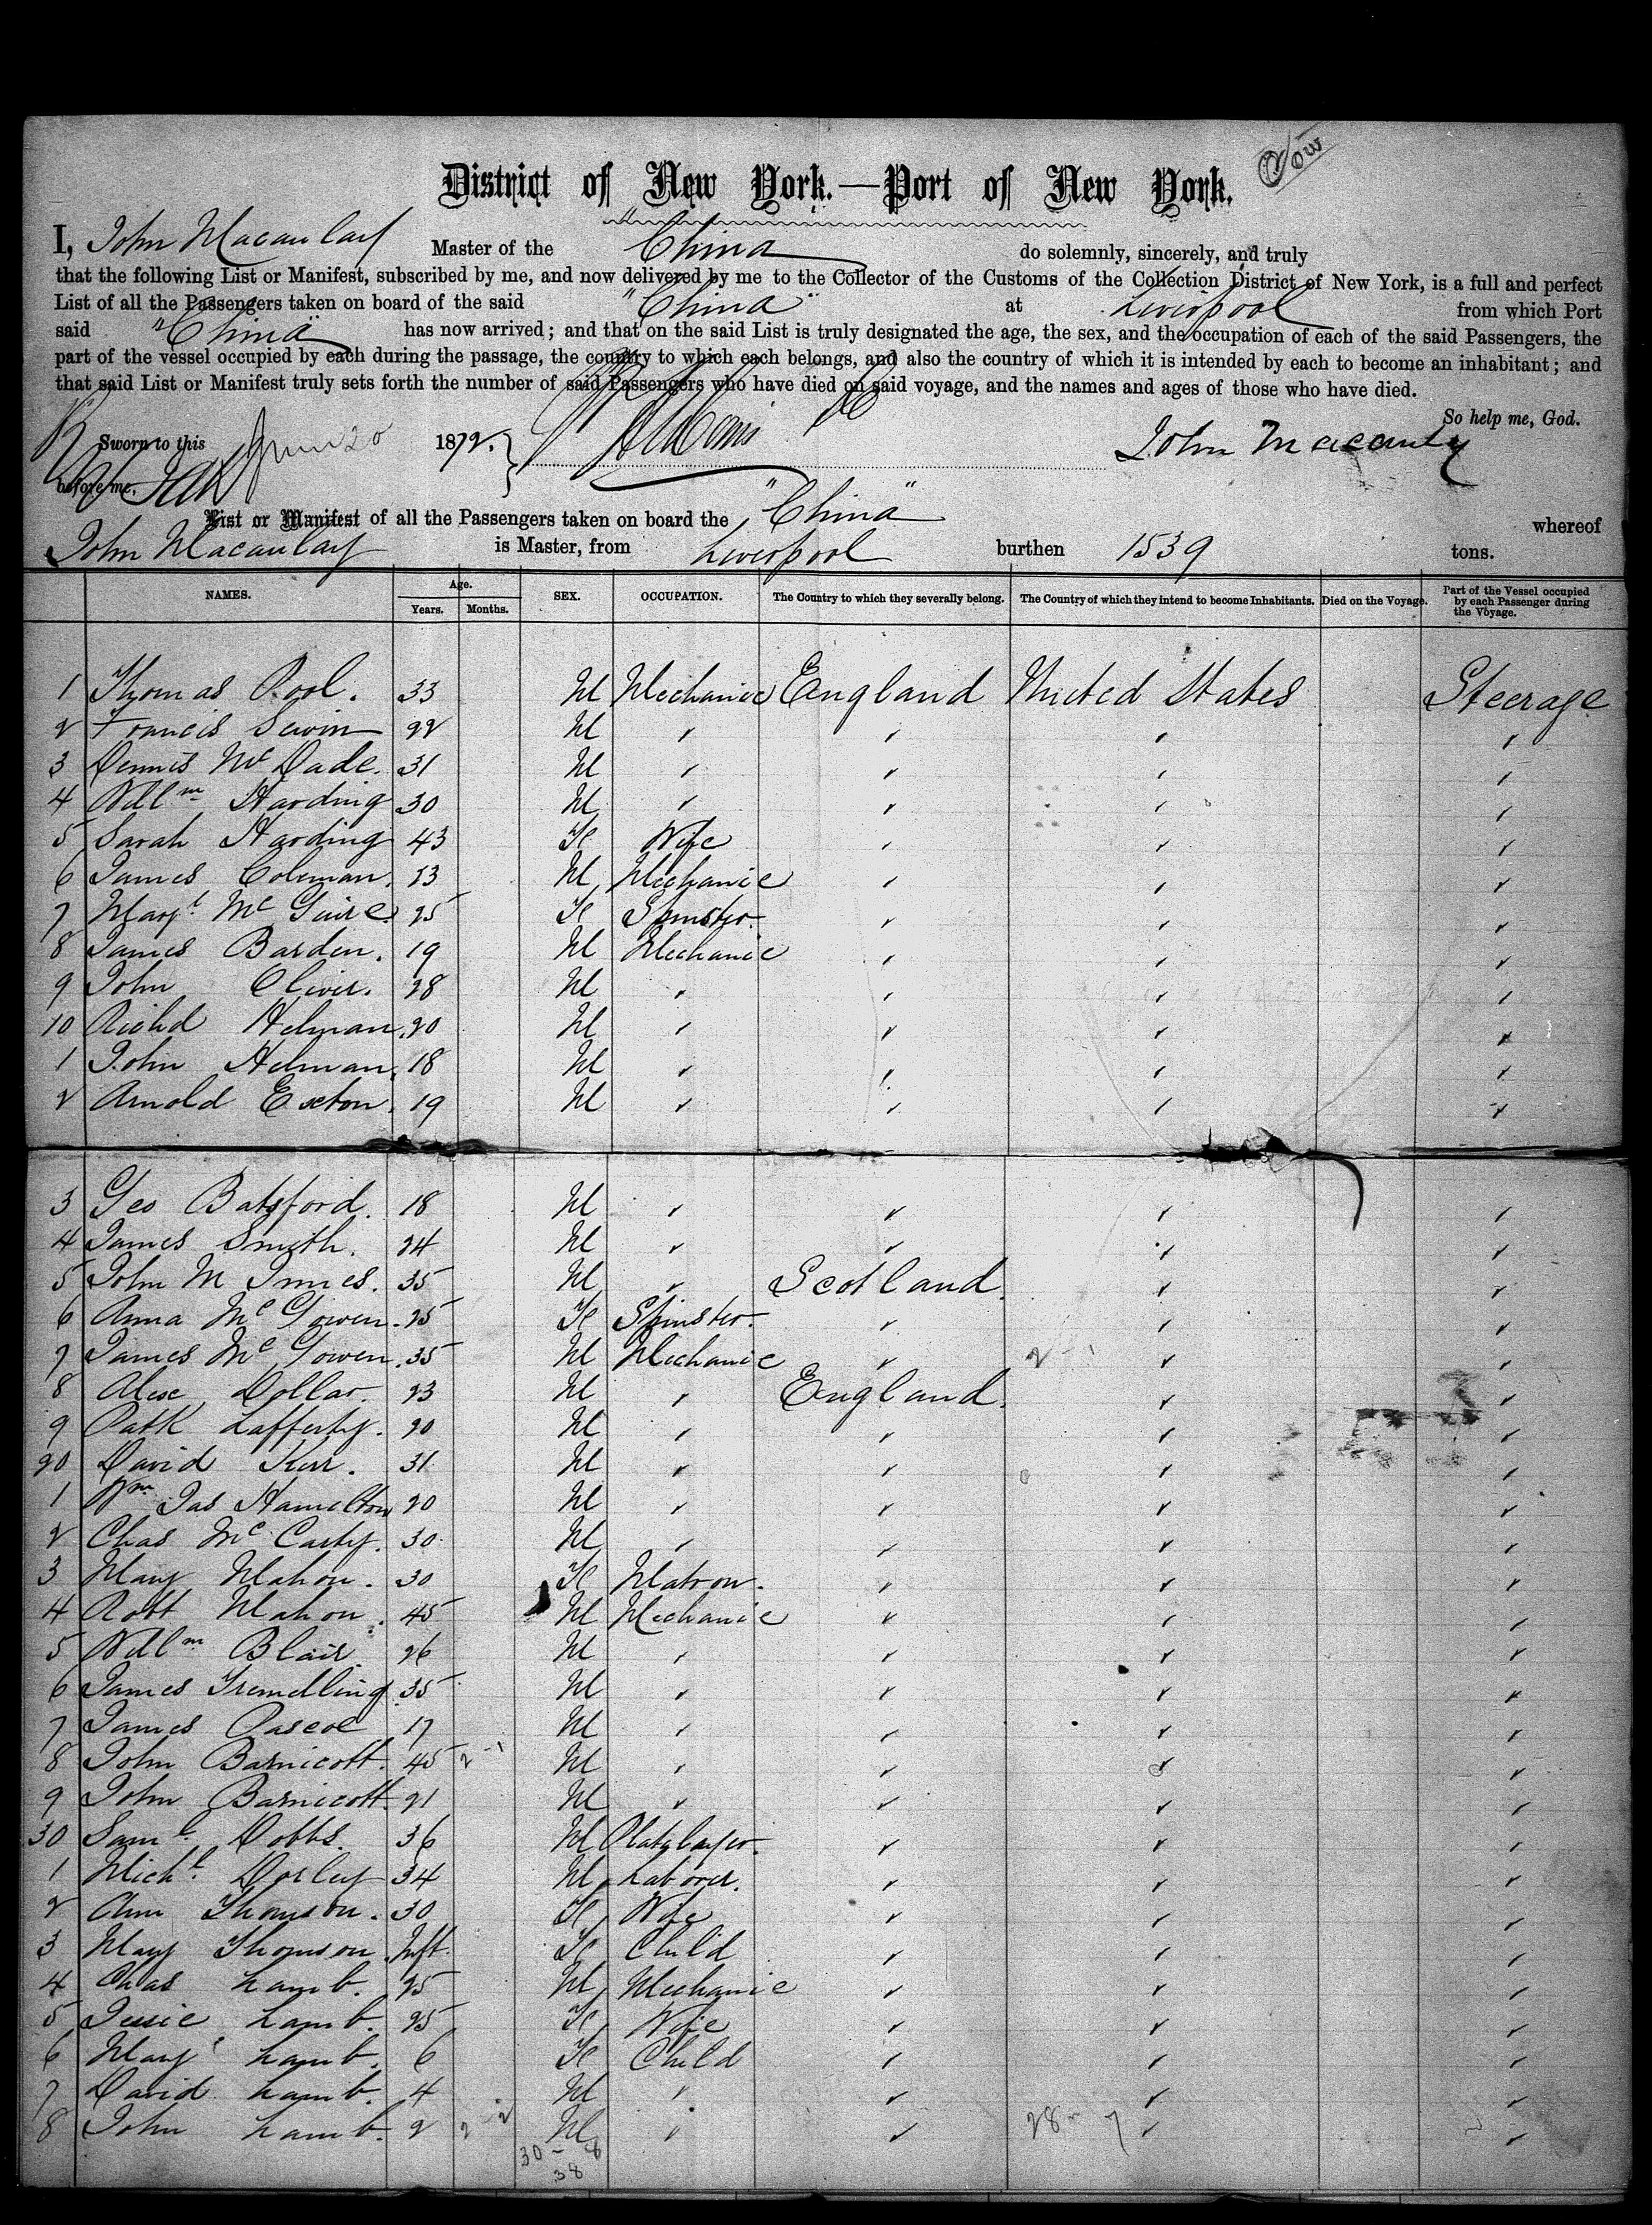 District of New York.—Port of New York.
I, John Macaulay Master of the China do solemnly, sincerely, and truly
that the following List or Manifest, subscribed by me, and now delivered by me to the Collector of the Customs of the Collection District of New York, is a full and perfect
List of all the Passengers taken on board of the said "China" at Liverpool from which Port
said "China" has now arrived; and that on the said List is truly designated the age, the sex, and the occupation of each of the said Passengers, the
part of the vessel occupied by each during the passage, the country to which each belongs, and also the country of which it is intended by each to become an inhabitant; and
that said List or Manifest truly sets forth the number of said Passengers who have died on said voyage, and the names and ages of those who have died.
So help me, God.
Sworn to this June 20 1872. John Macaulay
before me,
List or Manifest of all the Passengers taken on board the "China" whereof
John Macaulay is Master, from Liverpool burthen 1539 tons.
NAMES. Age. Years. Months. SEX. OCCUPATION. The Country to which they severally belong. The Country of which they intend to become Inhabitants. Died on the Voyage. Part of the Vessel occupied by each Passenger during the Voyage.
1 Thomas Pool. 33 M Mechanic England United States Steerage
2 Francis 22 M
3 Dennis McDade. 31 M
4 Willm Harding 30 M
5 Sarah Harding 43 Fe Wife
6 James Coleman. M Mechanic
7 Margt McGuire 25 Fe Spinster
8 James Barden. 19 M Mechanic
9 John Oliver. 28 M
10 Richd Helman. 20 M
1 John Helman. 18 M
2 Arnold Exton. 19 M
3 Geo Batsford. 18 M
4 James Smith. 24 M
5 John M Innes. 35 M Scotland.
6 Anna McGowen. 25 Fe Spinster.
7 James McGowen. 35 M Mechanic
8 Alex Dollar. 23 M England.
9 Patk Lafferty. 20 M
20 David Kerr. 31 M
1 Wm Jas Hamilton 20 M
2 Chas McCarty. 30 M
3 Mary Mahon. 30 Fe Matron.
4 Robt Mahon. 45 M Mechanic
5 Willm Blair. 26 M
6 James Tremelling 35 M
7 James Pascoe 17 M
8 John Barnicott. 45 M
9 John Barnicott. 21 M
30 Saml Dobbs. 36 M Platelayer.
1 Michl Dorley 34 M Laborer.
2 Ann Thomson. 30 Fe Wife
3 Mary Thomson Inft. Fe Child
4 Chas Lamb. 25 M Mechanic
5 Jessie Lamb. 25 Fe Wife
6 Mary Lamb. 6 Fe Child
7 David Lamb. 4 M
8 John Lamb. 2 M 28-7
30-8
38